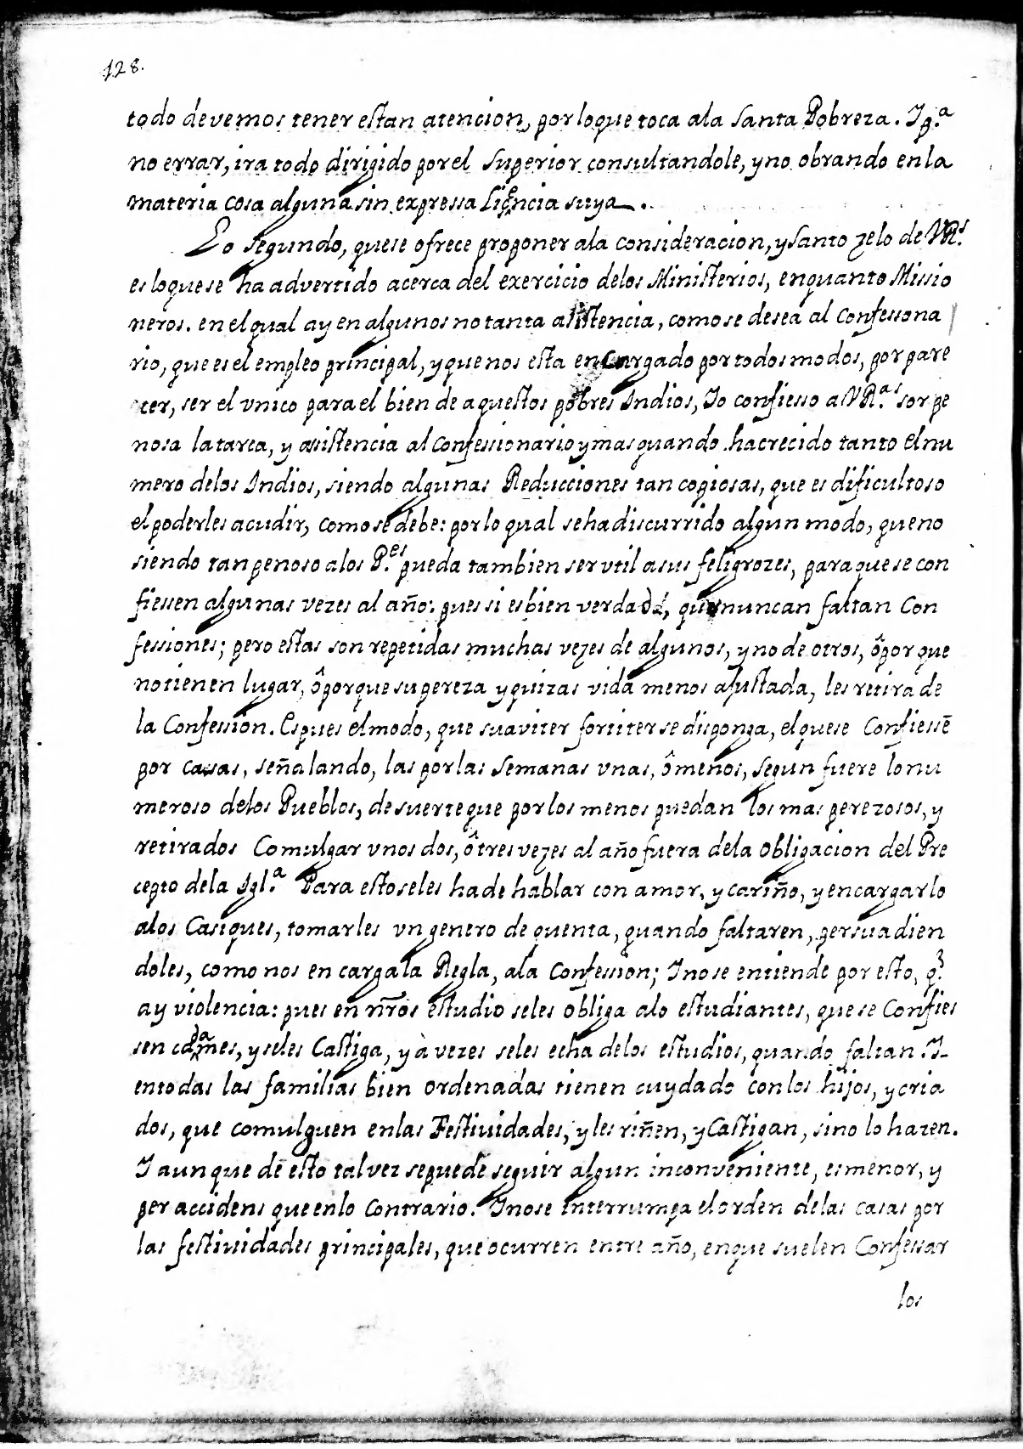 128.
todo devemos tener estan atencion, por loque toca ala Santa Pobreza. I p.ª
no errar, ira todo dirigido por el Superior consultandole, y no obrando en la
materia cosa alguna sin expressa Licencia suya.
Lo segundo, que se ofrece proponer ala consideracion, y santo zelo de VRs.
es loque se ha advertido acerca del exercicio delos Ministerios, en quanto Missio
neros. en el qual ay en algunos no tanta asistencia, como se desea al Confessona
rio, que es el empleo principal, y que nos esta encargado por todos modos, por pare
cer, ser el vnico para el bien de aquestos pobres Indios, Io confiesso a VR.as ser pe
nosa la tarea, y asistencia al Confessionario y mas quando ha crecido tanto el nu
mero delos Indios, siendo algunas Reducciones tan copiosas, que es dificultoso
el poderles acudir, como se debe: por lo qual se ha discurrido algun modo, que no
siendo tan penoso a los P.es pueda tambien ser vtil a sus feligrozes, para que se con
fiessen algunas vezes al año: pues si es bien verdad, que nuncan faltan Con
fessiones; pero estas son repetidas muchas vezes de algunos, y no de otros, ô por que
no tienen lugar, ô porque su pereza y quizas vida menos ajustada, les retira de
la Confession. Es pues el modo, que suaviter fortiter se disponga, el que se Confiessẽ
por casas, señalando, las por las semanas vnas, ô menos, segun fuere lo nu
meroso delos Pueblos, de suerte que por los menos puedan los mas perezosos, y
retirados Comulgar vnos dos, ô tres vezes al año fuera dela obligacion del Pre
cepto dela Igl.ª Para esto seles ha de hablar con amor, y cariño, y encargarlo
alos Casiques, tomarles vn genero de quenta, quando faltaren, persuadien
doles, como nos en carga la Regla, ala Confession; I no se entiende por esto, q.
ay violencia: pues en nr̃os estudio seles obliga alo estudiantes, que se Confies
sen cada mes, y seles Castiga, y à vezes seles echa delos estudios, quando faltan I
en todas las familias bien ordenadas tienen cuydado con los hijos, y cria
dos, que comulguen en las Festiuidades, y les riñen, y Castigan, sino lo hazen.
I aun que de esto tal vez se puede seguir algun inconveniente, es menor, y
per accidens que en lo Contrario. I no se interrumpa el orden de las casas por
las festiuidades principales, que ocurren entre año, en que suelen Confessar
los